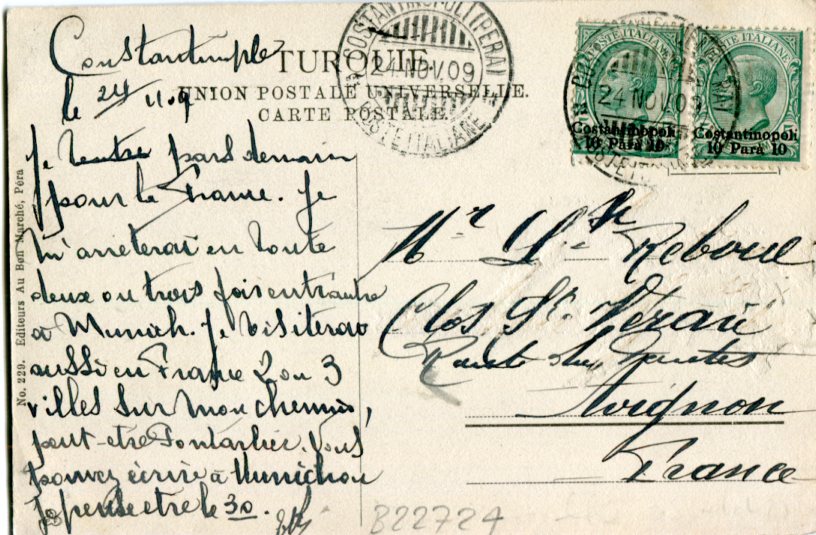 Constantinople
le 24 11.09
TURQUIE
UNION POSTALE UNIVERSELLE.
CARTE POSTALE.
COSTANTINOPOLI (PERA)
24 NOV. 09
POSTE ITALIANE
POSTE ITALIANE
Costantinopoli
10 Parà 10
POSTE ITALIANE
Costantinopoli
10 Parà 10
24 NOV. 09
Je pars demain
pour la France. Je
m'arrêterai en route
deux ou trois fois entr'autre
à Munich. Je visiterai
aussi en France 2 ou 3
villes sur mon chemin,
peut-etre Pontarlier. Vous
pouvez écrire à Munich ou
je pense etre le 30.
Mr Reboul
Clos St Véran
Route des
Avignon
France
No. 229. Editeurs Au Bon Marché, Péra
B22724